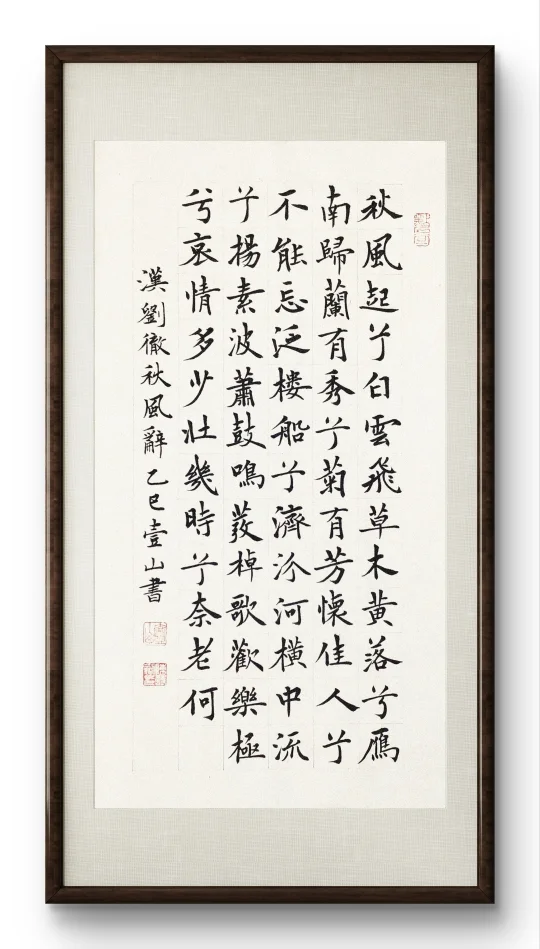 秋風起兮白雲飛草木黄落兮鴈
南歸蘭有秀兮菊有芳懷佳人兮
不能忘泛楼船兮濟汾河橫中流
兮揚素波蕭鼓鳴發棹歌歡樂極
兮哀情多少壯幾時兮奈老何
漢劉徹秋風辭乙巳壹山書